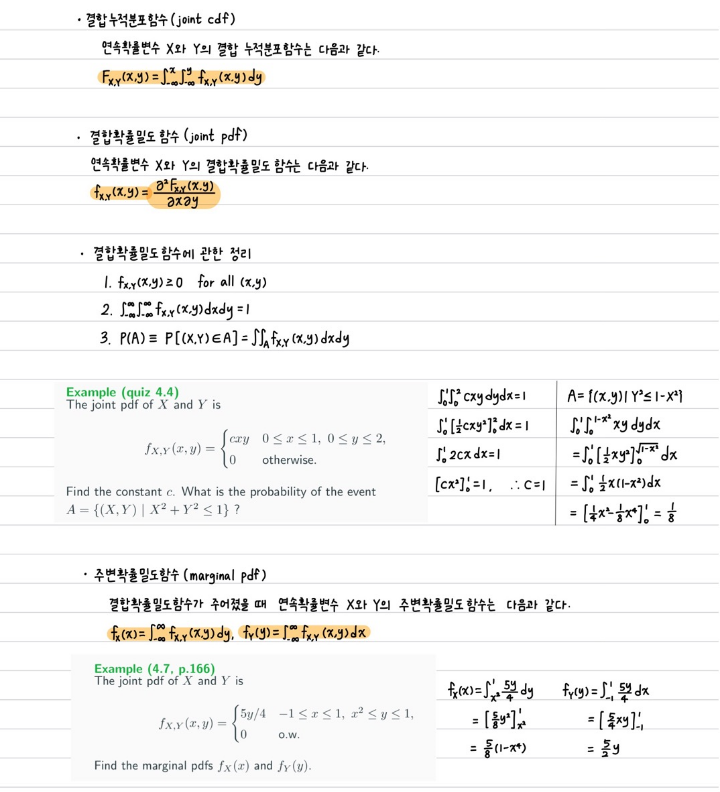 · 결합누적분포함수 (joint cdf)
연속확률변수 X와 Y의 결합 누적분포함수는 다음과 같다.
F_{X,Y}(x,y) = ∫_{-∞}^{x}∫_{-∞}^{y} f_{X,Y}(x,y)dy
· 결합확률밀도 함수 (joint pdf)
연속확률변수 X와 Y의 결합확률밀도 함수는 다음과 같다.
f_{X,Y}(x,y) = ∂²F_{X,Y}(x,y) / ∂x∂y
· 결합확률밀도함수에 관한 정리
1. f_{X,Y}(x,y) ≥ 0 for all (x,y)
2. ∫_{-∞}^{∞}∫_{-∞}^{∞} f_{X,Y}(x,y)dxdy = 1
3. P(A) ≡ P[(X,Y)∈A] = ∬_A f_{X,Y}(x,y)dxdy
Example (quiz 4.4)
The joint pdf of X and Y is
f_{X,Y}(x,y) = { cxy 0 ≤ x ≤ 1, 0 ≤ y ≤ 2,
0 otherwise.
Find the constant c. What is the probability of the event
A = {(X,Y) | X² + Y² ≤ 1} ?
∫_0^1∫_0^2 cxy dydx = 1
∫_0^1 [½cxy²]_0^2 dx = 1
∫_0^1 2cx dx = 1
[cx²]_0^1 = 1, ∴ C = 1
A = {(x,y) | Y² ≤ 1-X²}
∫_0^1∫_0^{1-x²} xy dydx
= ∫_0^1 [½xy²]_0^{√(1-x²)} dx
= ∫_0^1 ½x(1-x²)dx
= [¼x² - ⅛x⁴]_0^1 = ⅛
· 주변확률밀도함수 (marginal pdf)
결합확률밀도함수가 주어졌을 때 연속확률변수 X와 Y의 주변확률밀도 함수는 다음과 같다.
f_X(x) = ∫_{-∞}^{∞} f_{X,Y}(x,y)dy, f_Y(y) = ∫_{-∞}^{∞} f_{X,Y}(x,y)dx
Example (4.7, p.166)
The joint pdf of X and Y is
f_{X,Y}(x,y) = { 5y/4 -1 ≤ x ≤ 1, x² ≤ y ≤ 1,
0 o.w.
Find the marginal pdfs f_X(x) and f_Y(y).
f_X(x) = ∫_{x²}^1 5y/4 dy
= [⅝y²]_{x²}^1
= ⅝(1-x⁴)
f_Y(y) = ∫_{-1}^1 5y/4 dx
= [5/4 xy]_{-1}^1
= 5/2 y